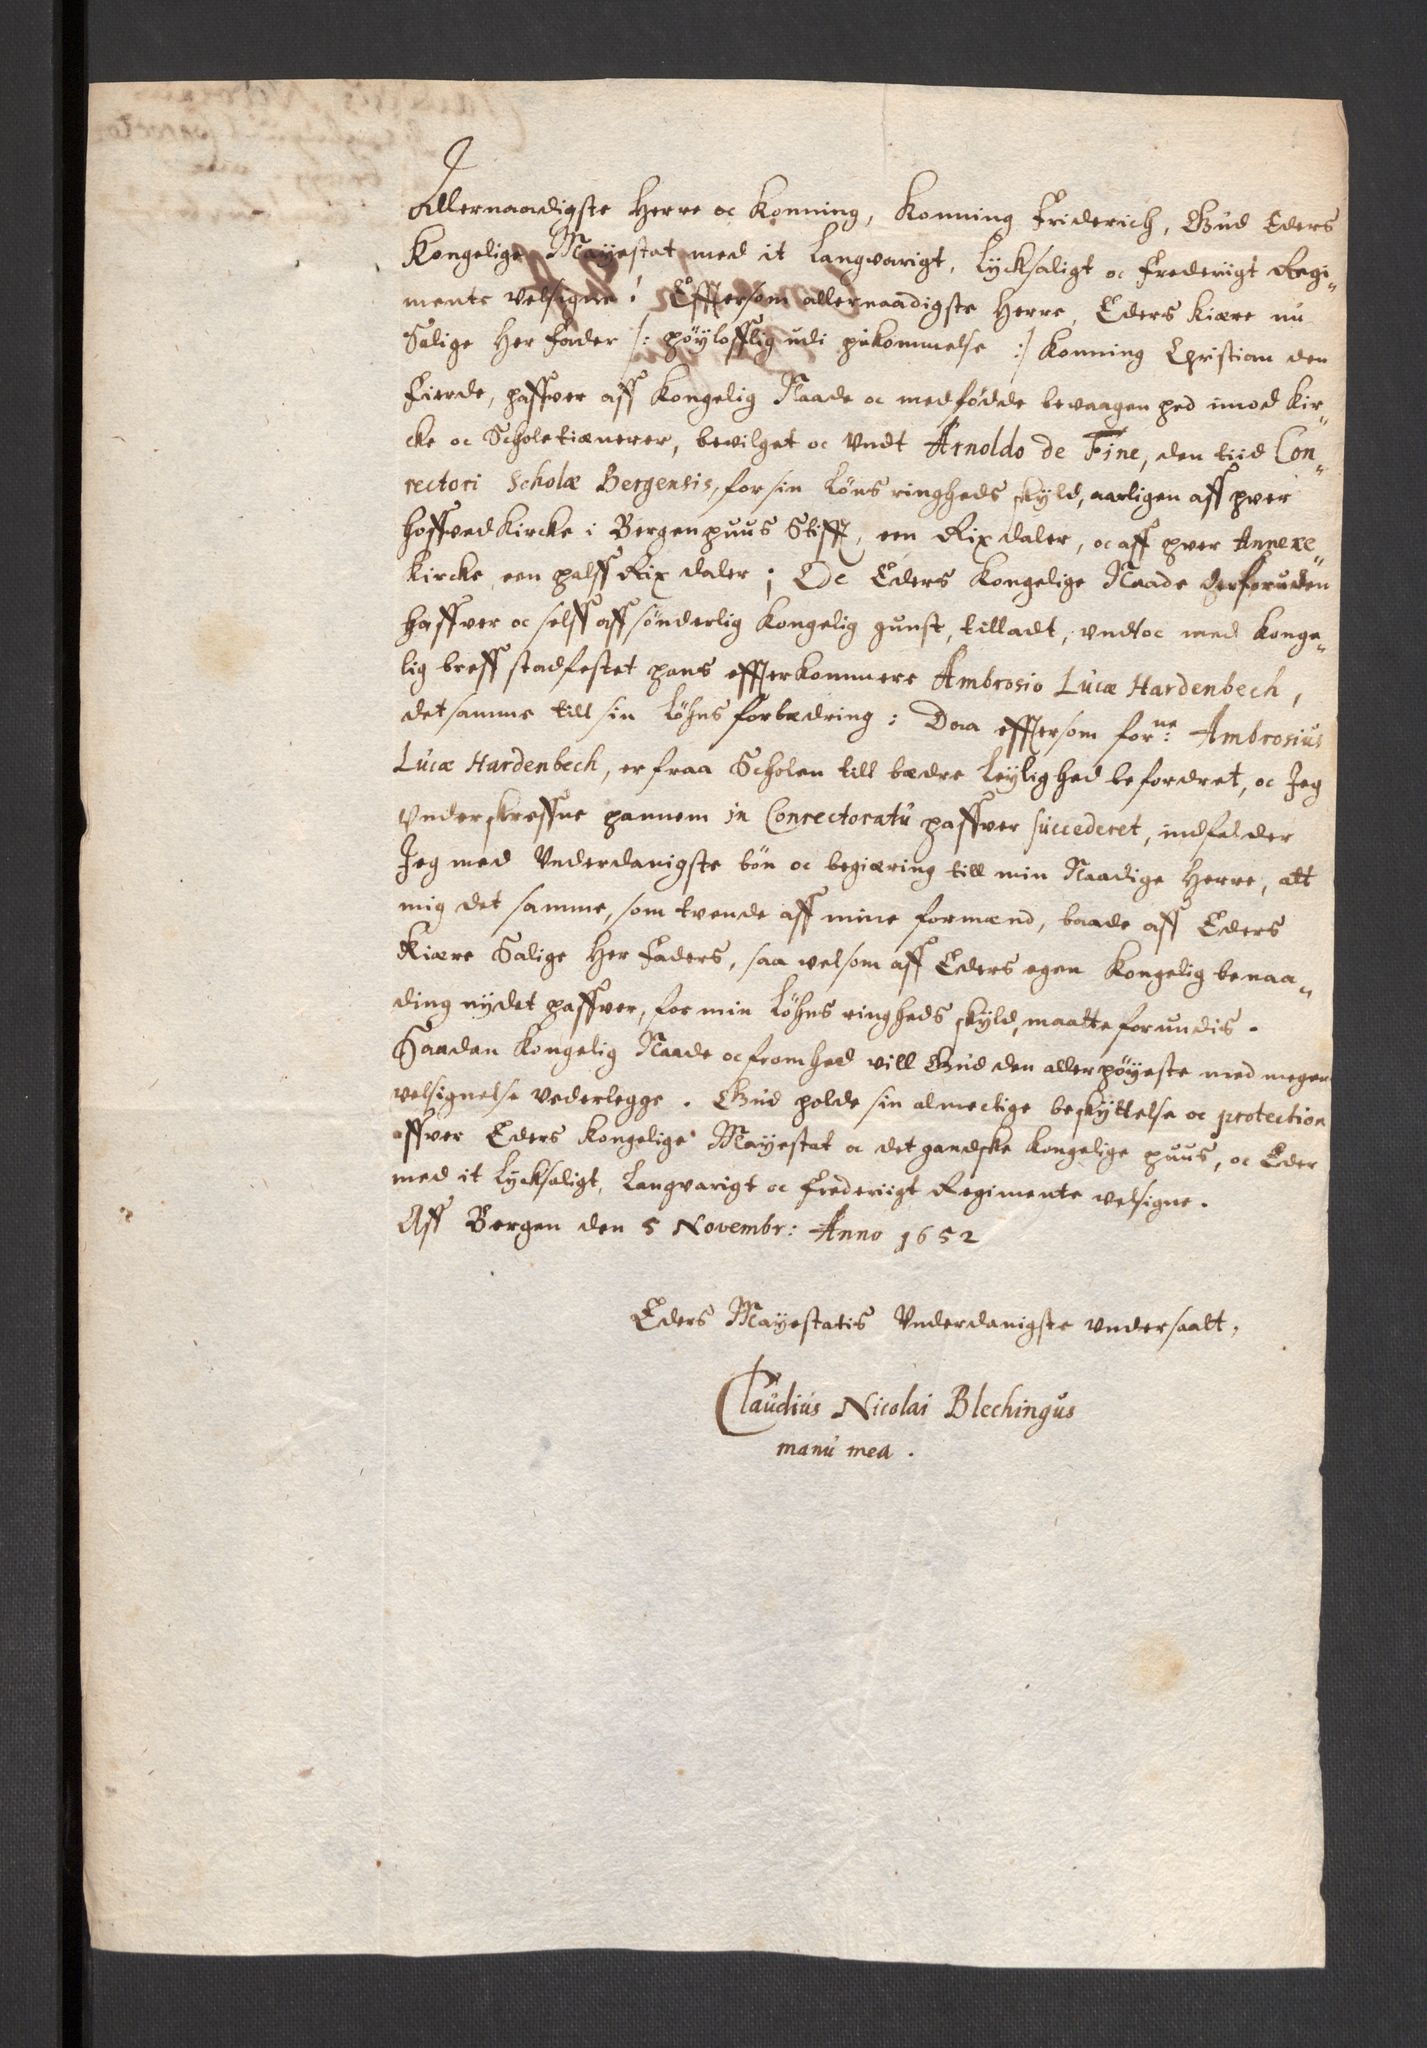 Allernaadigste Herre oc Konning, Konning Friderich, Gud Eders
Kongelige Mayestat med it Langvarigt, Lycksaligt oc Frederiigt Regi-
mente velsigne! Efftersom allernaadigste Herre, Eders kiære nu
Salige Her Fader /: høylofflig udi hukommelse :/ Konning Christian den
Fierde, haffver aff Kongelig Naade oc medfødde bevaagenhed imod Kir-
cke oc Scholetiænerer, bevilget oc Undt Arnoldo de Fine, den tiid Con-
rectori Scholæ Bergensis, for sin Löns ringheds skyld, aarligen aff hver
hoffvedkircke i Bergenhuus Stifft, een Rixdaler, oc aff hver Annexe
Kircke een halff Rix daler; Oc Eders Kongelige Naade derforuden
haffver oc selff aff sönderlig Kongelig gunst, tilladt, undt oc med Konge-
lig breff stadfestet hans effterkommere Ambrosio Lucæ Hardenbech,
det samme till sin Löhns forbædring: Daa efftersom forne: Ambrosius
Lucæ Hardenbech, er fraa Scholen till bædre Leylighed befordret, oc Jeg
Underskreffne hannem in Conrectoratu haffver succederet, indfalder
Jeg med Underdanigste bön oc begiæring till min Naadige Herre, att
mig det samme, som tvende aff mine formænd, baade aff Eders
Kiære Salige Her Faders, saa velsom aff Eders egen Kongelig benaa-
ding nydet haffver, for min Löhns ringheds skyld, maatte forundis.
Saadan Kongelig Naade oc fromhed vill Gud den allerhöyeste med megen
velsignelse vederlegge. Gud holde sin almectige beskyttelse oc protection
offver Eders Kongelige Mayestat oc det gandske Kongelige huus, oc Eder
med it Lycksaligt, Langvarigt oc Frederiigt Regimente velsigne.
Aff Bergen den 5 Novembr: Anno 1652
Eders Mayestatis Underdanigste undersaatt,
Claudius Nicolai Blechingus
manu mea.